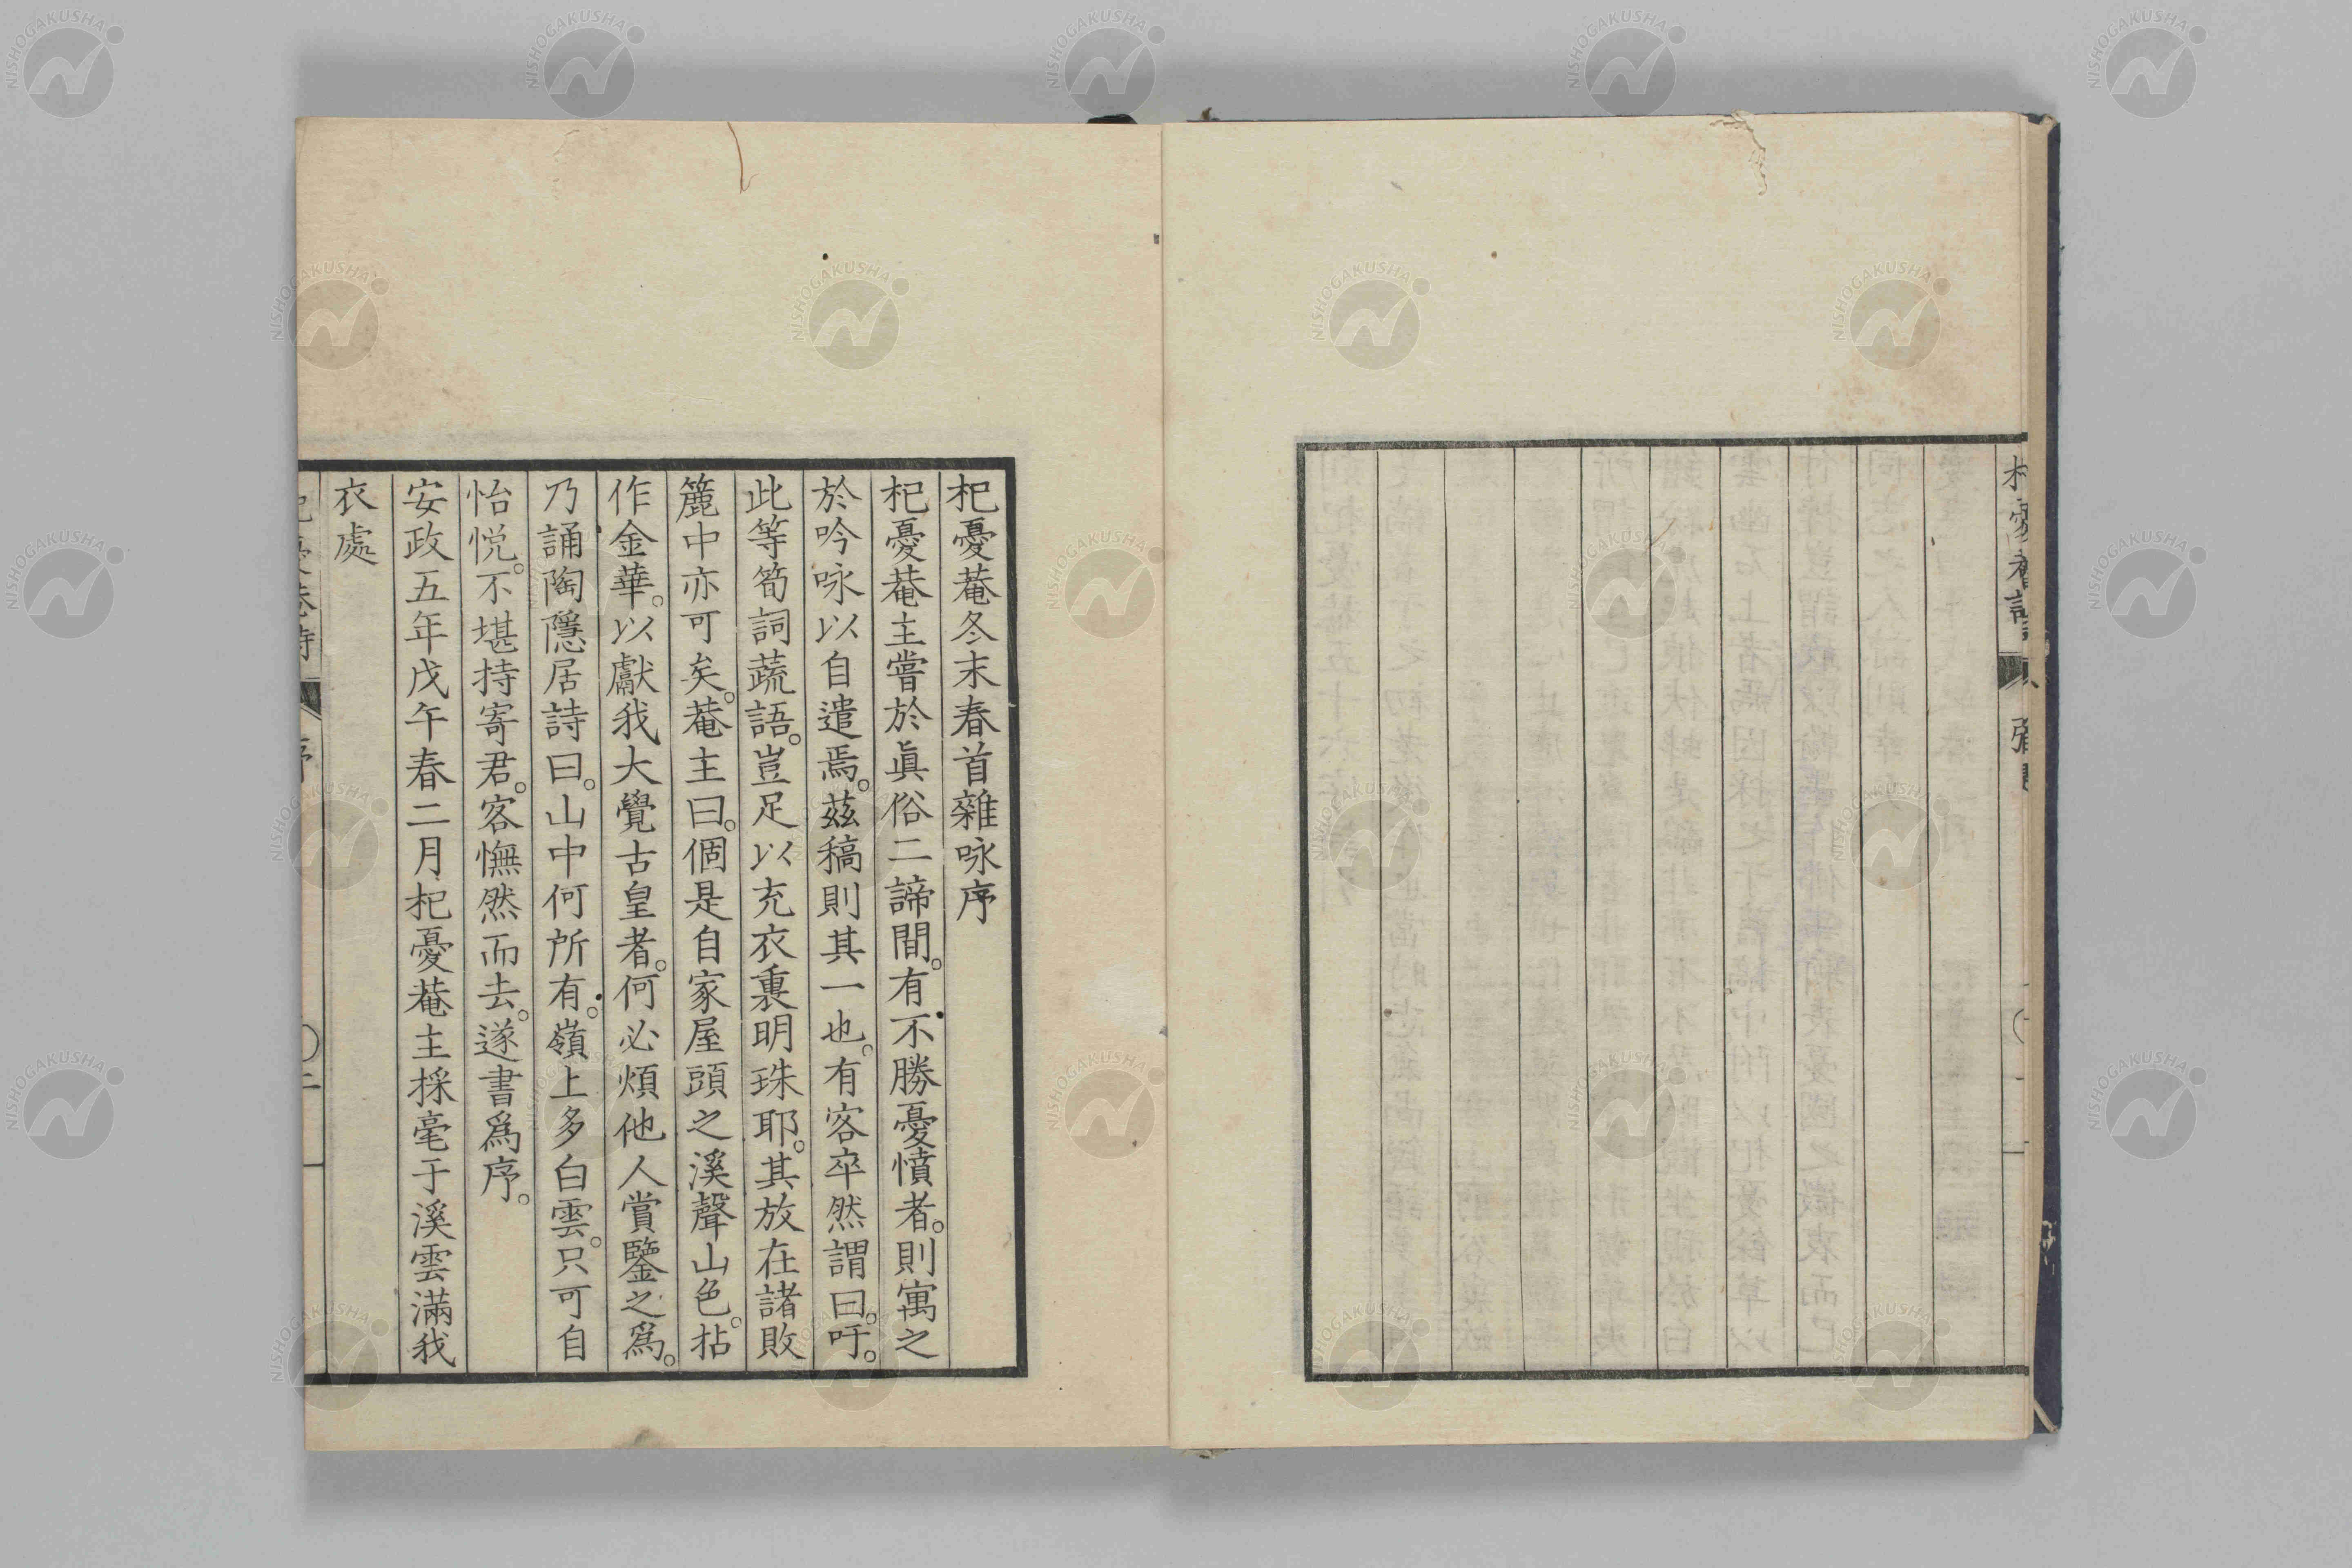 杞憂菴冬末春首雜咏序
杞憂菴主嘗於眞俗二諦間。有不勝憂憤者。則寓之
於吟咏以自遣焉。茲稿則其一也。有客卒然謂曰。吁。
此等筍詞蔬語。豈足以充衣裏明珠耶。其放在諸敗
簏中亦可矣。菴主曰。個是自家屋頭之溪聲山色。拈
作金華。以獻我大覺古皇者。何必煩他人賞鑒之爲。
乃誦陶隱居詩曰。山中何所有。嶺上多白雲。只可自
怡悅。不堪持寄君。客憮然而去。遂書爲序。
安政五年戊午春二月杞憂菴主採毫于溪雲滿我
衣處
NISHOGAKUSHA